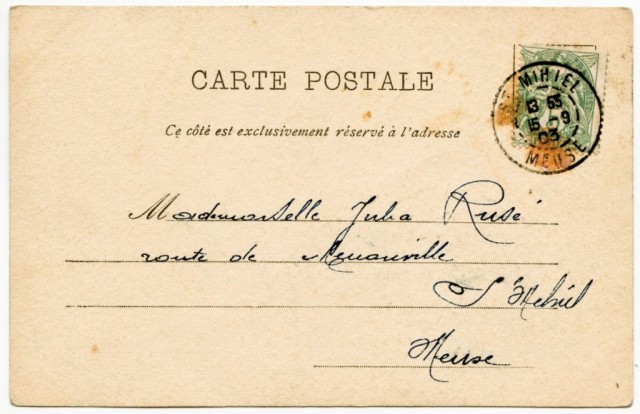 CARTE POSTALE
Ce côté est exclusivement réservé à l'adresse
ST MIHIEL
13 55
15 -9
03
MEUSE
Mademoiselle Julia Rusé
route de
St Mihiel
Meuse